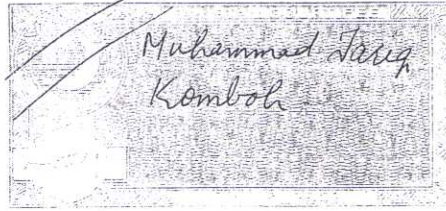 Muhammad Tariq
Komboh